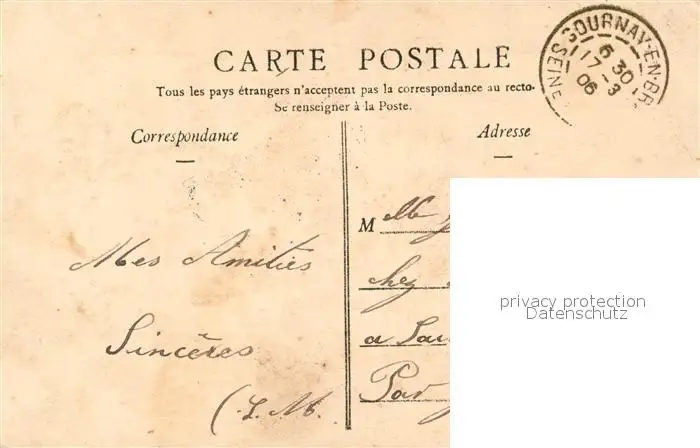 CARTE POSTALE
Tous les pays étrangers n'acceptent pas la correspondance au recto.
Se renseigner à la Poste.
GOURNAY-EN-BR
6 30
17 - 3
06
SEINE
Correspondance
Adresse
Mes Amitiés
Sincères
M Mlle
chez
a
Par
privacy protection
Datenschutz